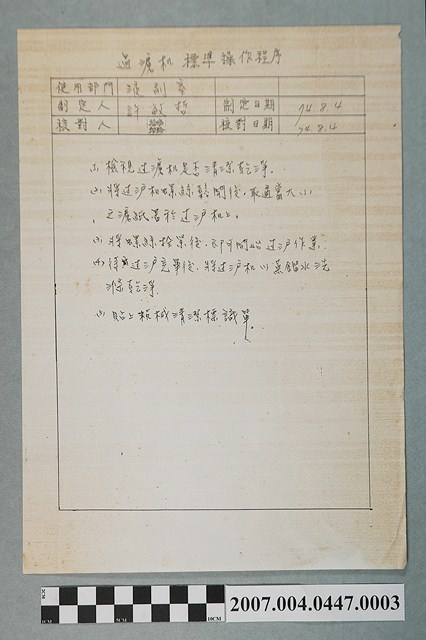 過濾机 標準操作程序
使用部門 液劑室
制定人 許敏哲 制定日期 74.8.4
核對人 核對日期 74.8.4
(1) 檢視过濾机是否清潔乾淨.
(2) 將过沪机螺絲鬆開後,取適當大小
之濾紙置於过沪机上。
(3) 將螺絲拴緊後,即可開始过沪作業.
(4) 待过沪完畢後,將过沪机以蒸餾水洗
滌乾淨.
(5) 貼上机械清潔標識單.
2007.004.0447.0003